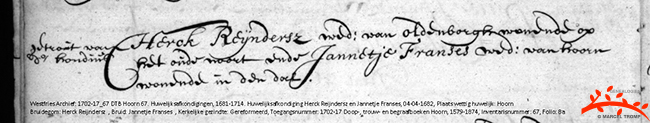 getrout van
de hondius
Herck Reÿndersz wed: van oldenborgh wonende op
het oude noort ende Jannetje Franses wed: van hoorn
wonende in den dal.
Westfries Archief; 1702-17_67 DTB Hoorn 67, Huwelijksafkondigingen, 1681-1714. Huwelijksafkondiging Herck Reijndersz en Jannetje Franses, 04-04-1682, Plaats wettig huwelijk: Hoorn
Bruidegom: Herck Reijndersz , Bruid Jannetje Franses , Kerkelijke gezindte: Gereformeerd, Toegangsnummer: 1702-17 Doop-, trouw- en begraafboeken Hoorn, 1579-1874, Inventarisnummer: 67, Folio: 8a
GENEALOGIE
© MARCEL TROMP